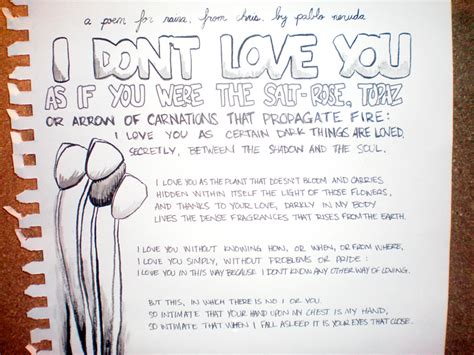 a poem for raisa, from chris, by pablo neruda
I DON'T LOVE YOU
AS IF YOU WERE THE SALT-ROSE, TOPAZ
OR ARROW OF CARNATIONS THAT PROPAGATE FIRE:
I LOVE YOU AS CERTAIN DARK THINGS ARE LOVED,
SECRETLY, BETWEEN THE SHADOW AND THE SOUL.
I LOVE YOU AS THE PLANT THAT DOESN'T BLOOM AND CARRIES
HIDDEN WITHIN ITSELF THE LIGHT OF THOSE FLOWERS,
AND THANKS TO YOUR LOVE, DARKLY IN MY BODY
LIVES THE DENSE FRAGRANCES THAT RISES FROM THE EARTH.
I LOVE YOU WITHOUT KNOWING HOW, OR WHEN, OR FROM WHERE,
I LOVE YOU SIMPLY, WITHOUT PROBLEMS OR PRIDE:
I LOVE YOU IN THIS WAY BECAUSE I DON'T KNOW ANY OTHER WAY OF LOVING.
BUT THIS, IN WHICH THERE IS NO I OR YOU.
SO INTIMATE THAT YOUR HAND UPON MY CHEST IS MY HAND,
SO INTIMATE THAT WHEN I FALL ASLEEP IT IS YOUR EYES THAT CLOSE.